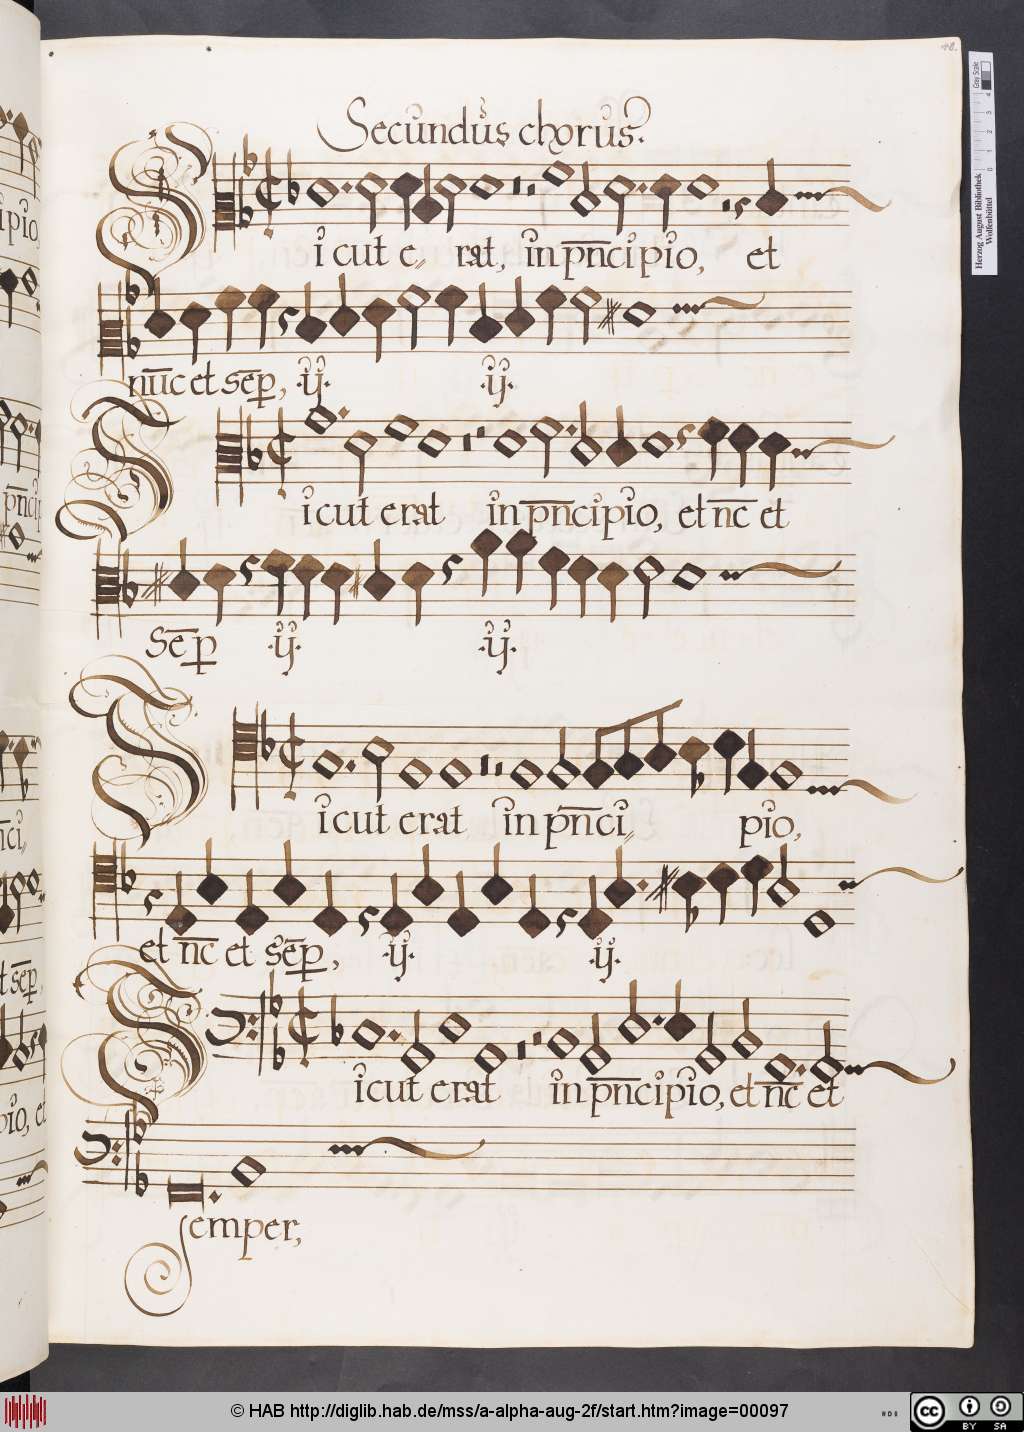 48.
Secundus chorus.
Sicut e〃 rat, in pn̄cipio, et
nūc et sēp, ·ij· ·ij·
Sicut erat in pn̄cipio, et nc̄ et
Sēp ·ij· ·ij·
Sicut erat in pn̄ci〃 pio,
et nc̄ et sēp, ·ij· ·ij·
Sicut erat in pn̄cipio, et nc̄ et
semper,
Gray Scale
Herzog August Bibliothek
Wolfenbüttel
0 1 2 3 4
© HAB http://diglib.hab.de/mss/a-alpha-aug-2f/start.htm?image=00097
cc BY SA